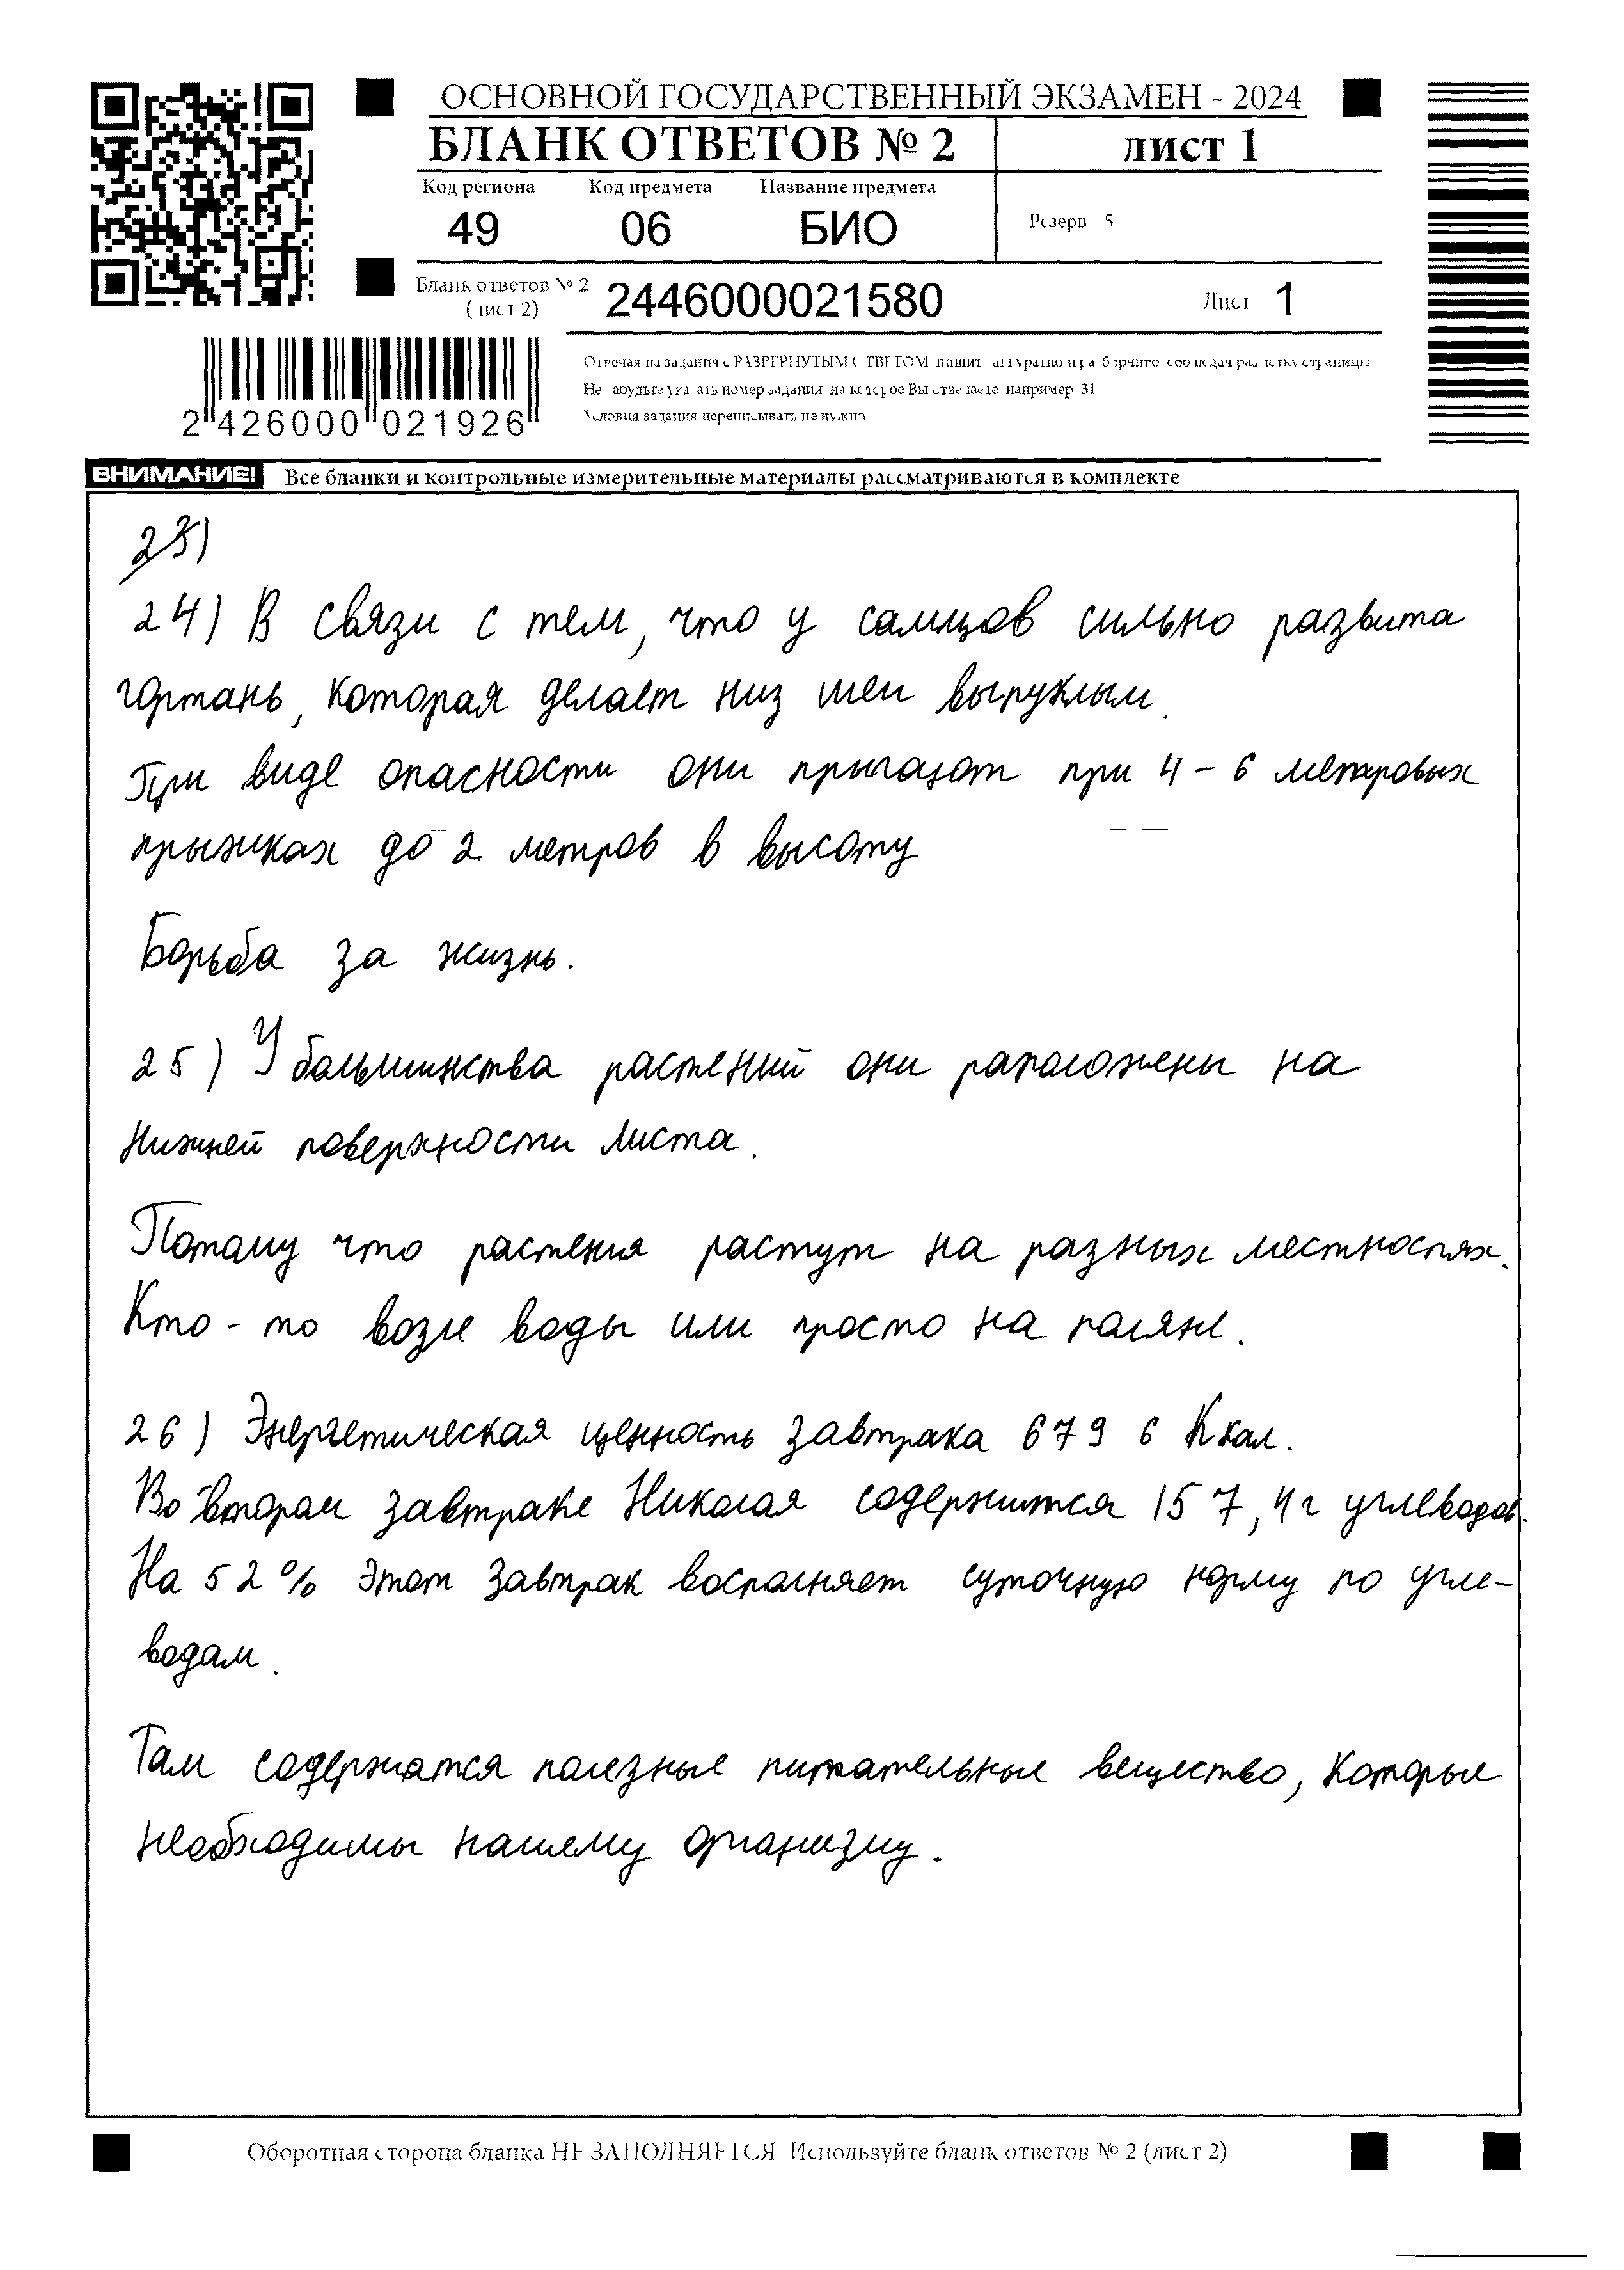 ОСНОВНОЙ ГОСУДАРСТВЕННЫЙ ЭКЗАМЕН - 2024
БЛАНК ОТВЕТОВ № 2
ЛИСТ 1
Код региона Код предмета Название предмета
49 06 БИО
Резерв 5
Бланк ответов № 2
(лист 2)
2446000021580
Лист 1
2 426000 021926
Отвечая на задания с РАЗВЕРНУТЫМ ОТВЕТОМ, пишите аккуратно и разборчиво, соблюдая разметку страницы
Не забудьте указать номер задания, на которое Вы отвечаете, например 31
Условия задания переписывать не нужно
ВНИМАНИЕ! Все бланки и контрольные измерительные материалы рассматриваются в комплекте
23)
24) В связи с тем, что у самцов сильно развита
гортань, которая делает низ шеи выпуклым.
При виде опасности они прыгают при 4 - 6 метровых
прыжках до 2 метров в высоту
Борьба за жизнь.
25) У большинства растений они раположены на
нижней поверхности листа.
Потому что растения растут на разных местностях.
Кто-то возле воды или просто на поляне.
26) Энергетическая ценность завтрака 679 6 Ккал.
Во втором завтраке Николая содержится 157,4 г углеводов.
На 52% этот завтрак восполняет суточную норму по угле-
водам.
Там содержатся полезные питательные вещество, которые
необходимы нашему организму.
Оборотная сторона бланка НЕ ЗАПОЛНЯЕТСЯ Используйте бланк ответов № 2 (лист 2)